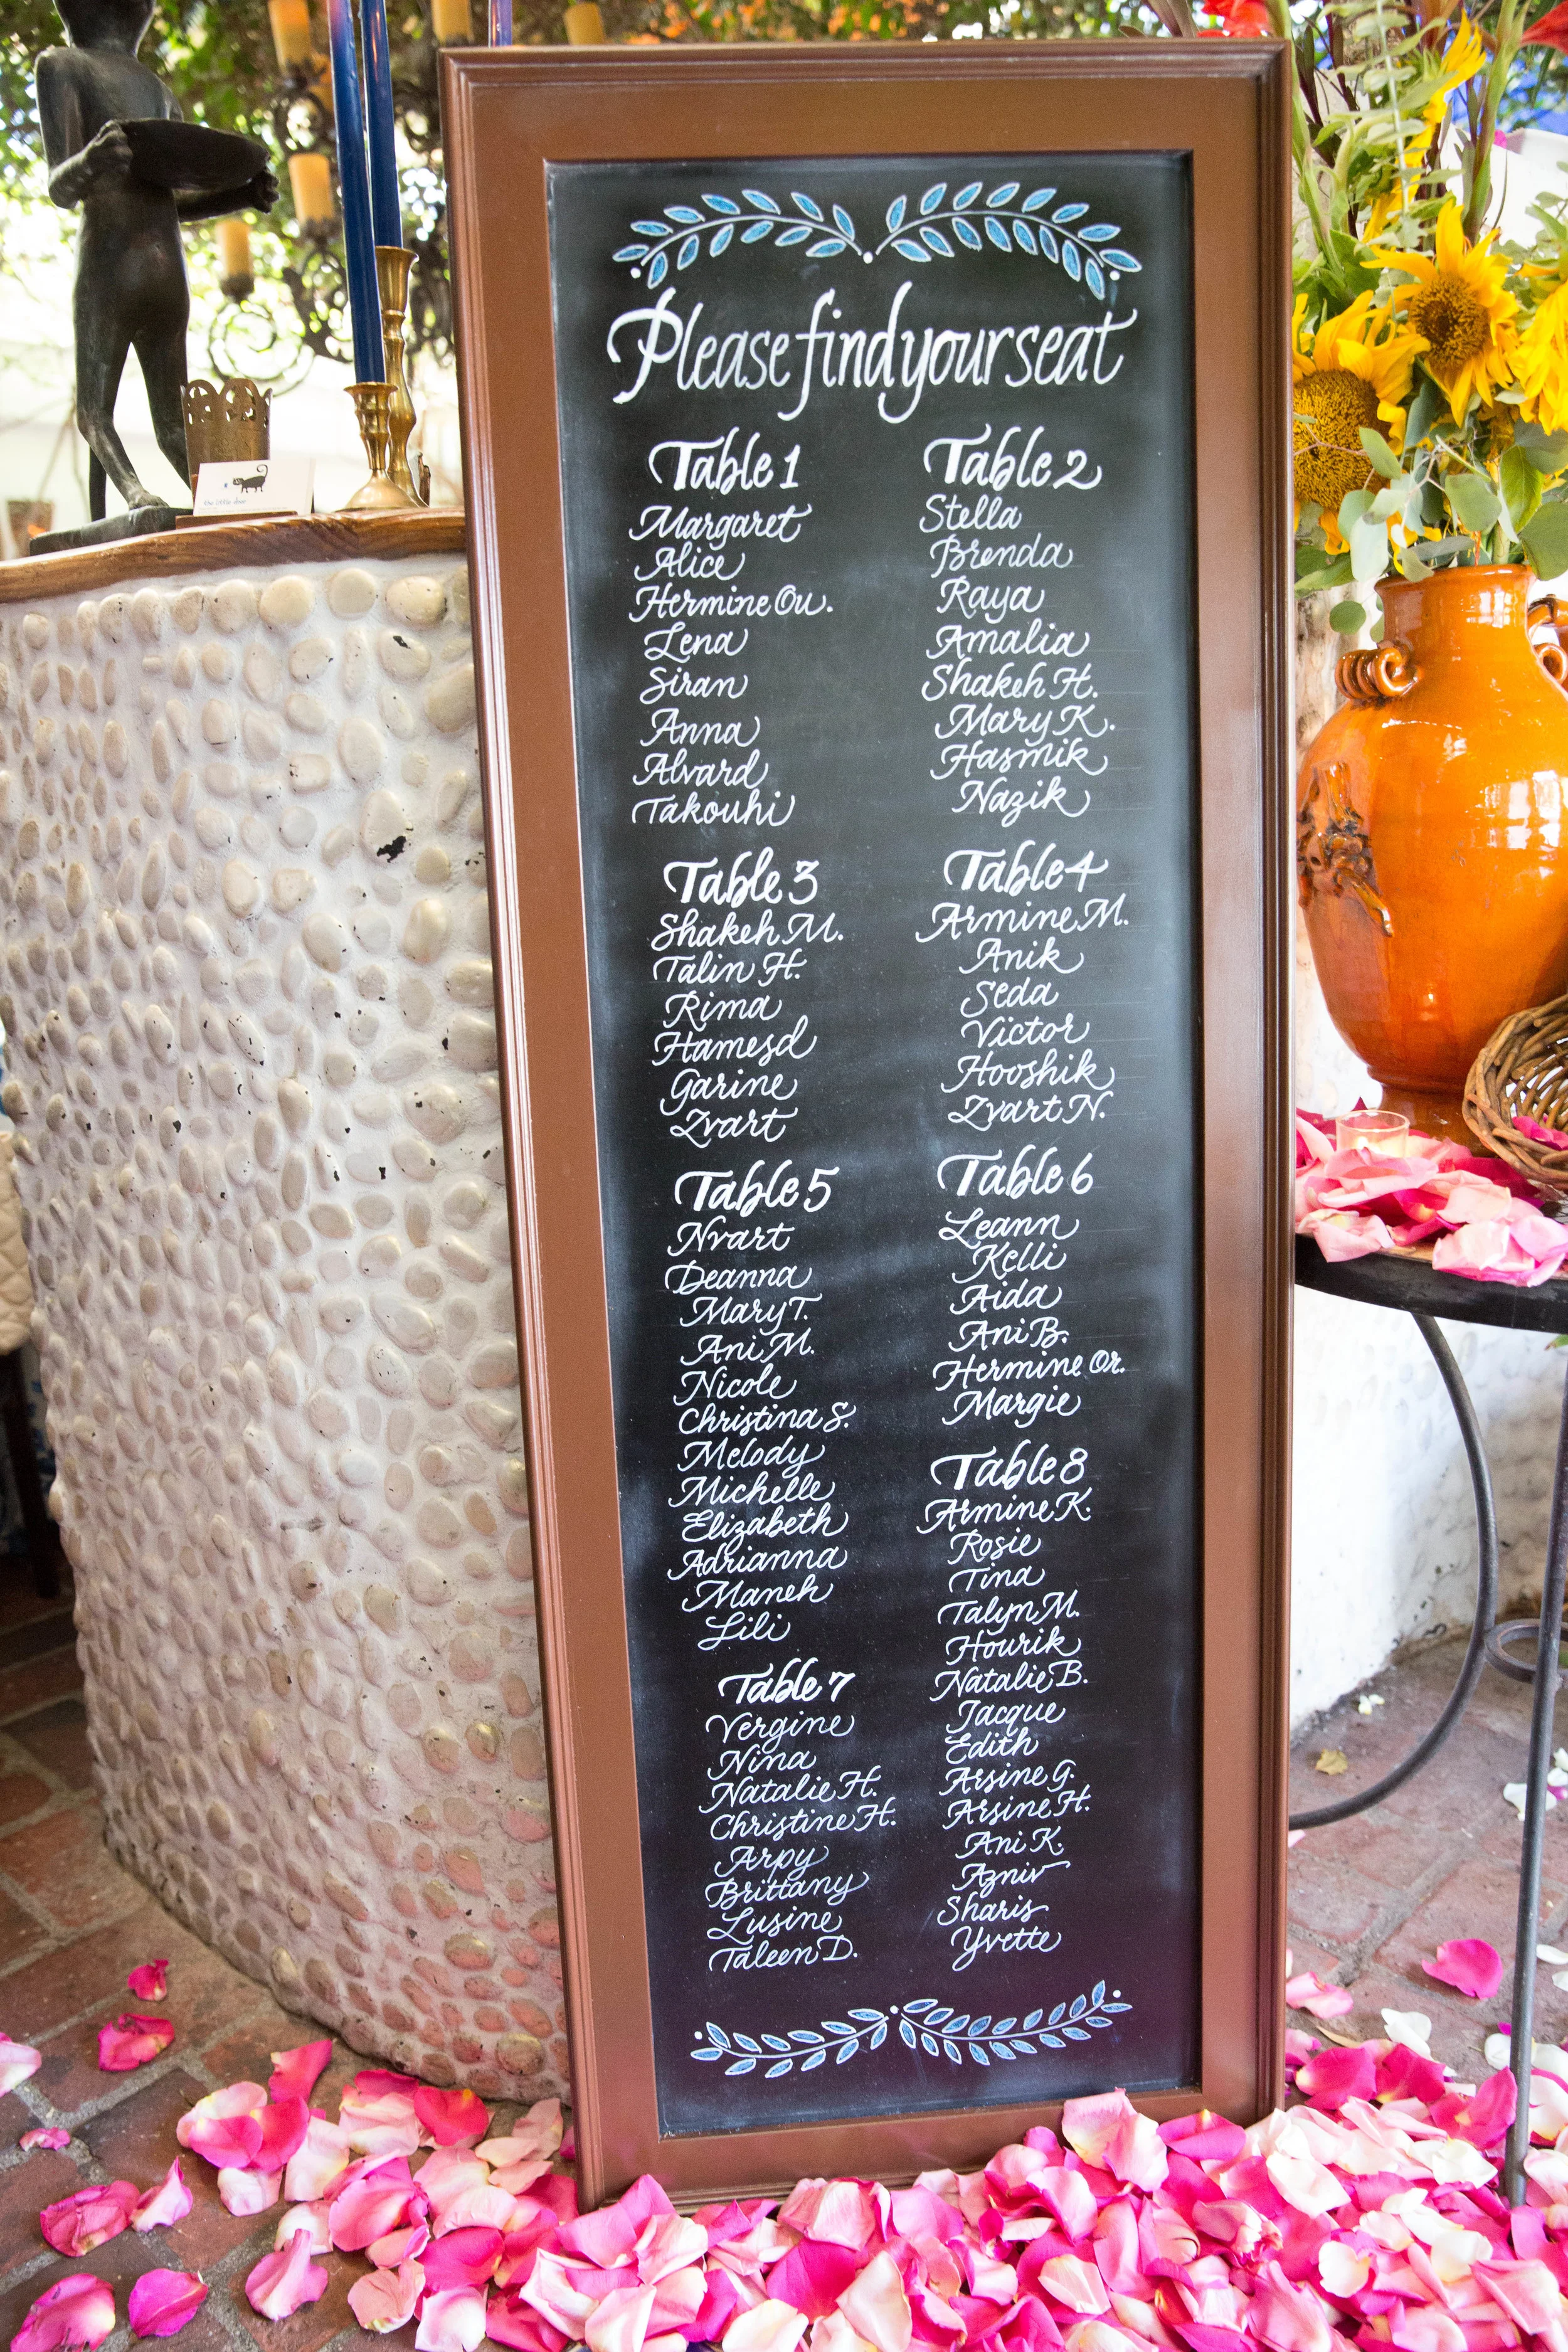 the little door
Please find your seat
Table 1
Margaret
Alice
Hermine Ou.
Lena
Siran
Anna
Alvard
Takouhi
Table 2
Stella
Brenda
Raya
Amalia
Shakeh H.
Mary K.
Hasmik
Nazik
Table 3
Shakeh M.
Talin H.
Rima
Hamesd
Garine
Zvart
Table 4
Armine M.
Anik
Seda
Victor
Hooshik
Zvart N.
Table 5
Nvart
Deanna
Mary T.
Ani M.
Nicole
Christina S.
Melody
Michelle
Elizabeth
Adrianna
Maneh
Lili
Table 6
Leann
Kelli
Aida
Ani B.
Hermine Or.
Margie
Table 7
Vergine
Nina
Natalie H.
Christine H.
Arpy
Brittany
Lusine
Taleen D.
Table 8
Armine K.
Rosie
Tina
Talyn M.
Hourik
Natalie B.
Jacque
Edith
Arsine G.
Arsine H.
Ani K.
Azniv
Sharis
Yvette